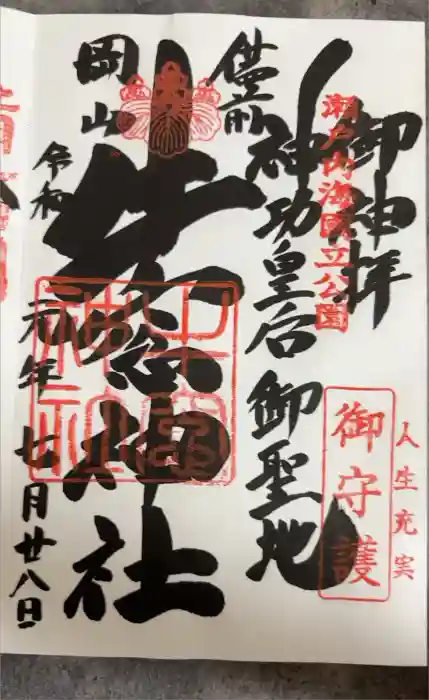 御神拝
瀬戸内海國立公園
人生充実
御守護
神功皇后 御聖地
備前
牛窓神社
牛窓神社
岡山
令和元年 月廿八日